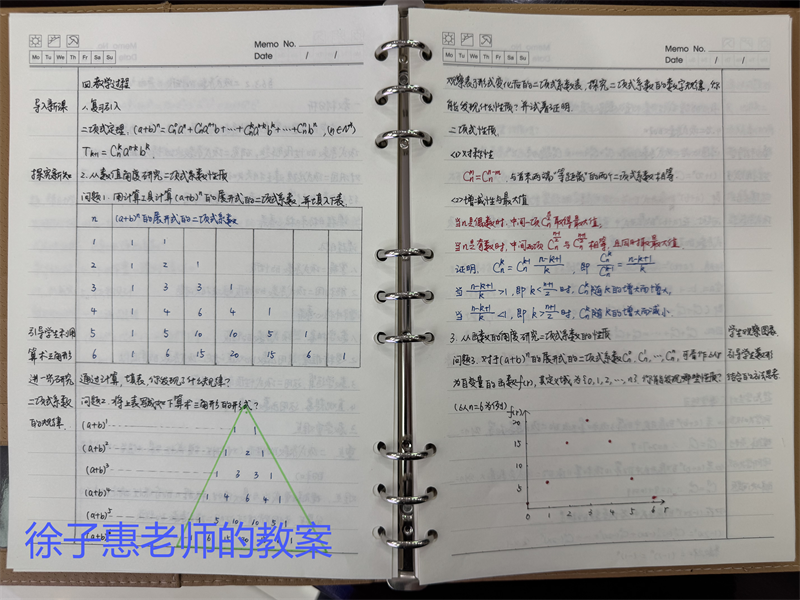 Memo No.
Mo Tu We Th Fr Sa Su
Date / /
四.教学过程
导入新课
1.复习引入
二项式定理,(a+b)ⁿ=Cₙ⁰aⁿ+Cₙ¹aⁿ⁻¹b+…+Cₙᵏaⁿ⁻ᵏbᵏ+…+Cₙⁿbⁿ,(n∈N*)
Tₖ₊₁=Cₙᵏaⁿ⁻ᵏbᵏ.
探究新知
2.从数值角度研究二项式系数性质
问题1.用计算工具计算(a+b)ⁿ的展开式的二项式系数,并填入下表.
n (a+b)ⁿ的展开式的二项式系数
1 1 1
2 1 2 1
3 1 3 3 1
4 1 4 6 4 1
5 1 5 10 10 5 1
6 1 6 15 20 15 6 1
引导学生不用
算术三角形
进一步研究
二项式系数
的规律.
通过计算,填表,你发现了什么规律?
问题2.将上表写成如下算术三角形的形式?
(a+b)¹ 1 1
(a+b)² 1 2 1
(a+b)³ 1 3 3 1
(a+b)⁴ 1 4 6 4 1
(a+b)⁵ 1 5 10 10 5 1
徐子惠老师的教案
Memo No.
Mo Tu We Th Fr Sa Su
Date / /
观察表1形式变化后的二项式系数表,探究二项式系数的数字规律,你
能发现什么性质?并试着证明.
二项式性质.
<1>对称性
Cₙᵐ=Cₙⁿ⁻ᵐ,与首末两端"等距离"的两个二项式系数相等.
<2>增减性与最大值
当n是偶数时,中间一项取得最大值.
当n是奇数时,中间两项与相等,且同时取最大值
证明. Cₙᵏ=Cₙᵏ⁻¹ (n-k+1)/k,即 Cₙᵏ/Cₙᵏ⁻¹=(n-k+1)/k
当 (n-k+1)/k>1,即k<(n+1)/2时,Cₙᵏ随k的增大而增大,
当 (n-k+1)/k<1,即k>(n+1)/2时,Cₙᵏ随k的增大而减小.
3.从函数的角度研究二项式系数的性质
问题3.对于(a+b)ⁿ的展开式的二项式系数Cₙ⁰,Cₙ¹,…,Cₙⁿ,可看作以r
为自变量的函数f(r),其定义域为{0,1,2,…,n}.
(以n=6为例)
学生观察图表
引导学生数形
结合的方法思考
f(r)
20
15
10
5
0 1 2 3 4 5 6 r